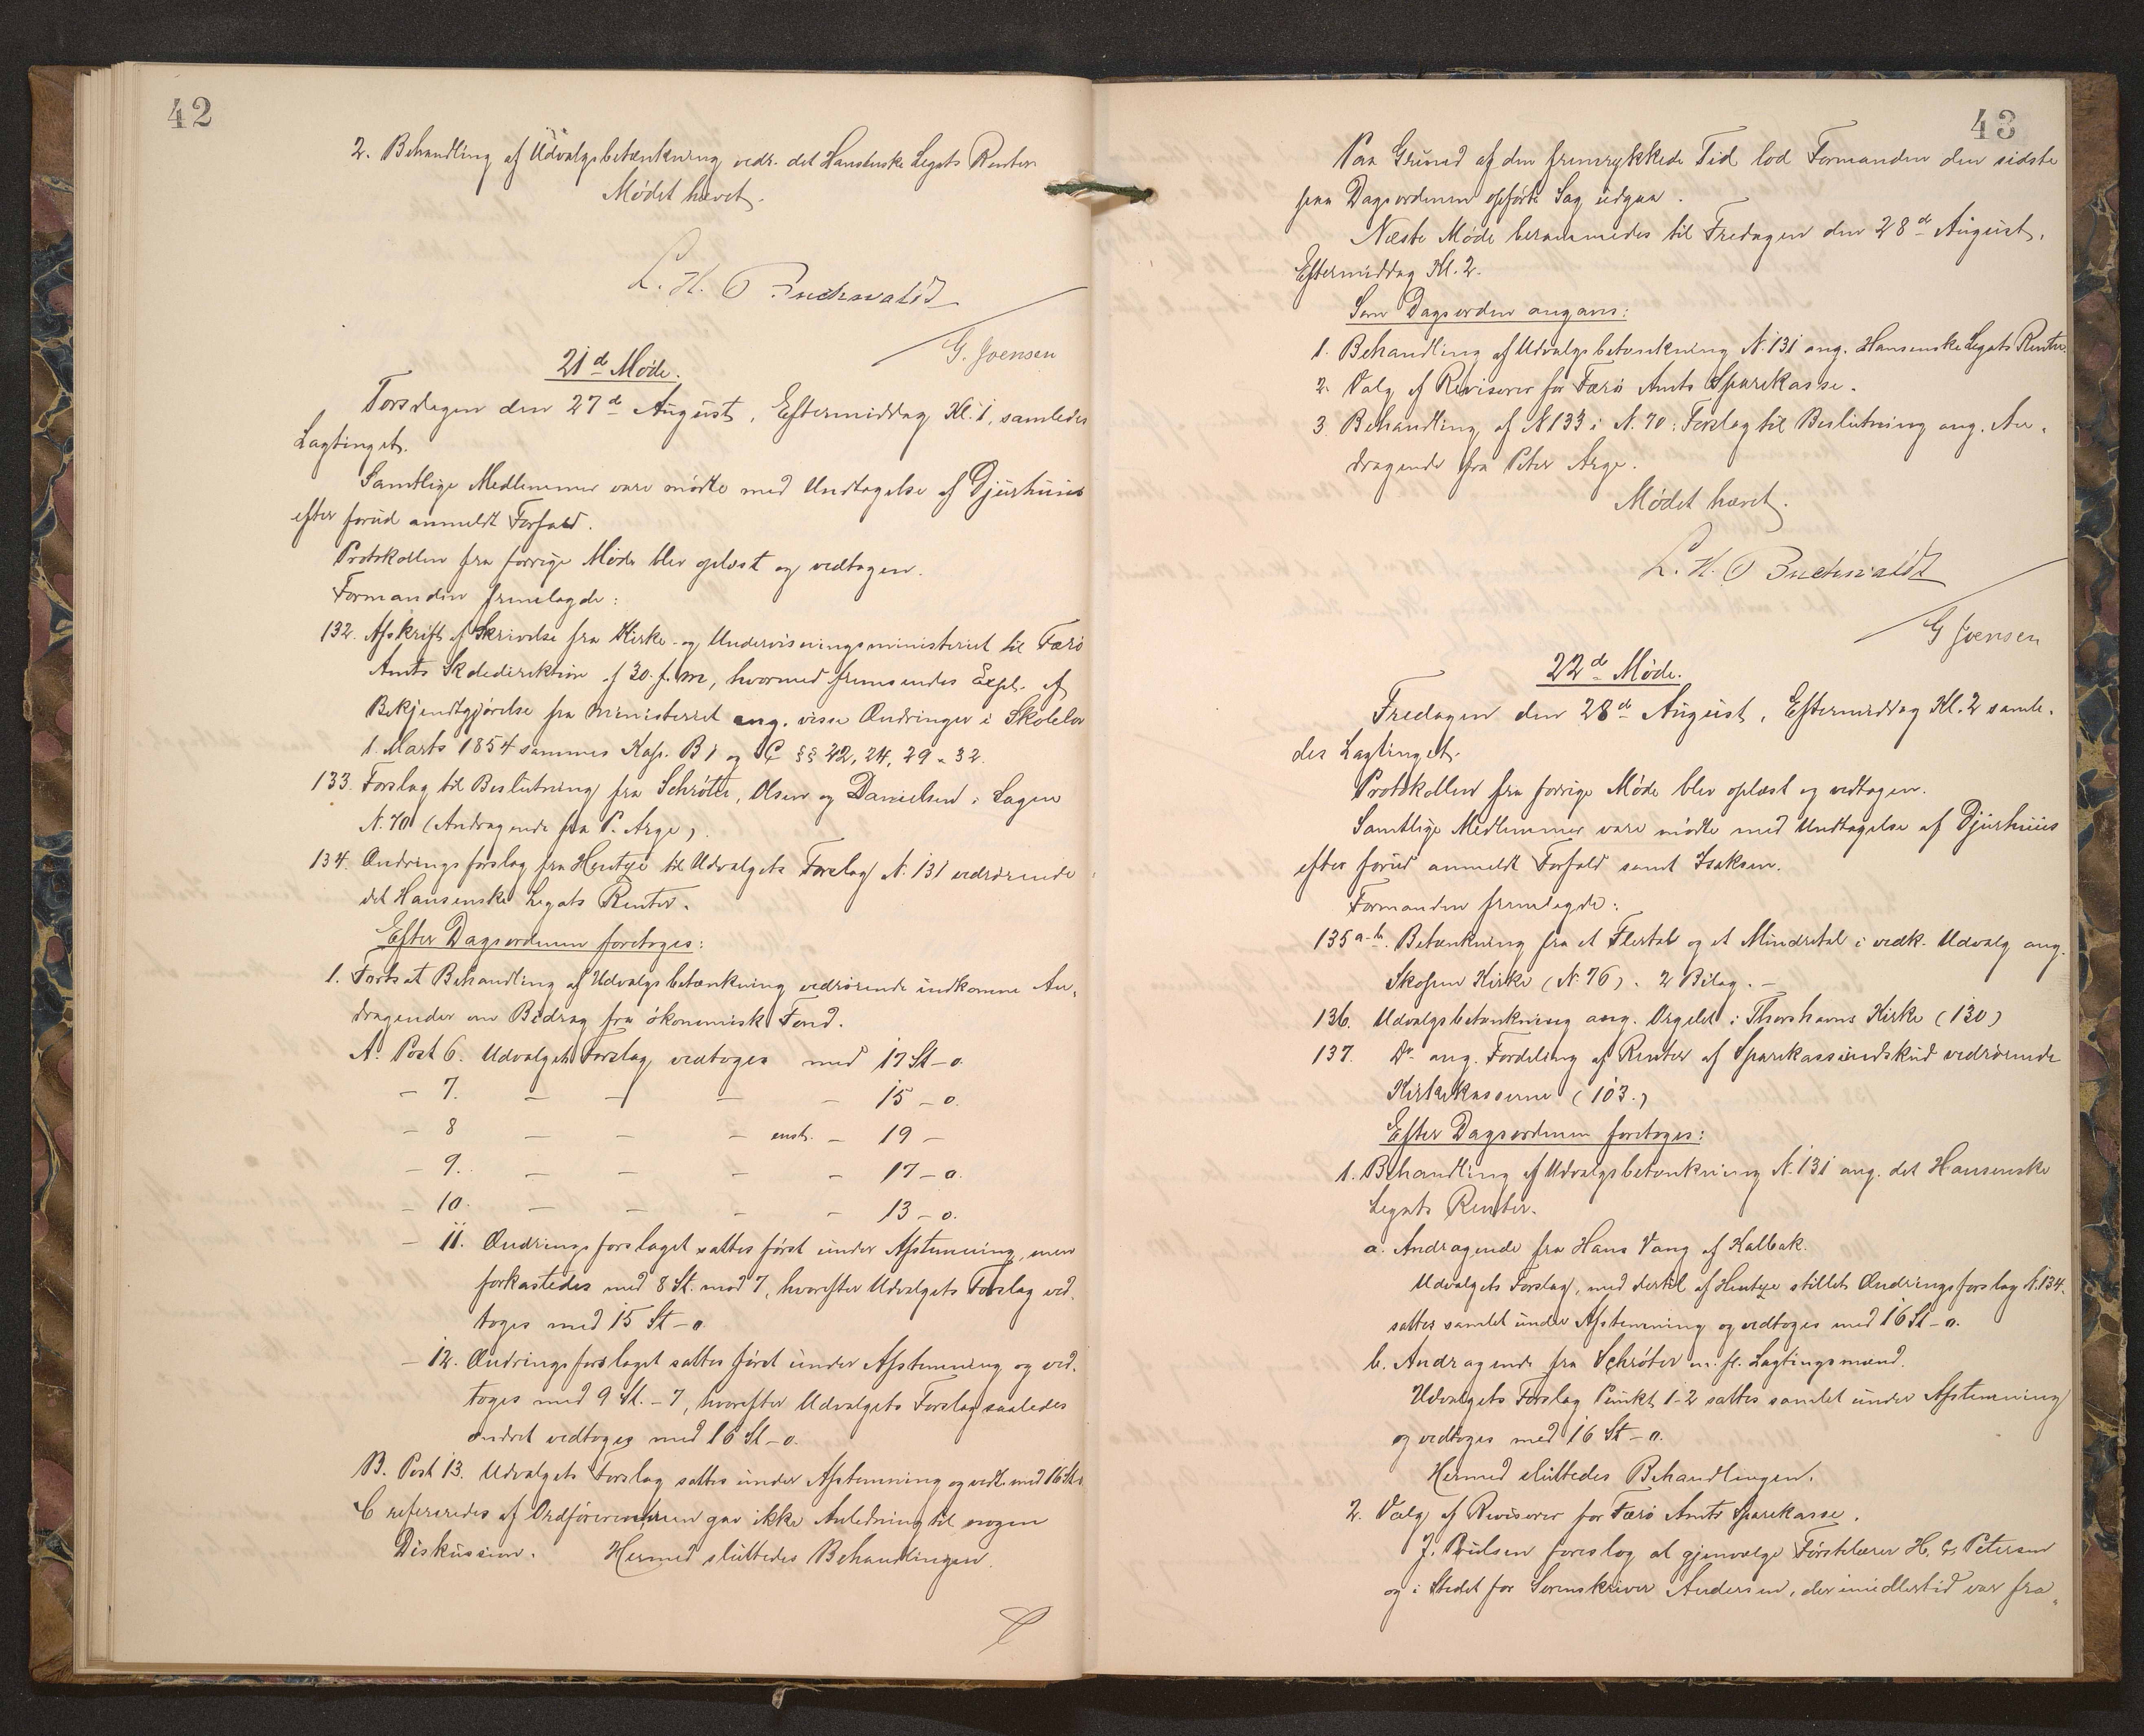 42
2. Behandling af Udvalgsbetænkning vedr. det Hansenske Legats Renter
Mødet hævet.
L. H. O Buchwaldt
G. Joensen
21d Møde.
Torsdagen den 27d August, Eftermiddag Kl. 1, samledes
Lagtinget.
Samtlige Medlemmer vare mødte med Undtagelse af Djurhuus
efter forud anmeldt Forfald.
Protokollen fra forrige Møde blev oplæst og vedtagen.
Formanden fremlagde:
132. Afskrift af Skrivelse fra Kirke- og Undervisningsministeriet til Færø
Amts Skoledirektion af 30. f. M, hvormed fremsendes Expl. af
Bekjendtgjørelse fra Ministeriet ang. visse Ændringer i Skolelov
1. Marts 1854 sammes Kap. B 1 og C §§ 22, 24, 29 & 32.
133. Forslag til Beslutning fra Schrøter, Olsen og Danielsen i Sagen
N. 70 (Andragende fra P. Arge).
134. Ændringsforslag fra Hentze til Udvalgets Forslag N. 131 vedrørende
det Hansenske Legats Renter.
Efter Dagsordenen foretoges:
1. Fortsat Behandling af Udvalgsbetænkning vedrørende indkomne An-
dragender om Bidrag fra økonomisk Fond.
A. Post 6. Udvalgets Forslag vedtoges med 17 St - 0.
- 7. - - - - 15 - 0.
- 8 - - - enst. - 19 -
- 9. - - - - 17 - 0.
- 10. - - - - 13 - 0.
- 11. Ændringsforslaget sattes først under Afstemning, men
forkastedes med 8 St. mod 7, hvorefter Udvalgets Forslag ved-
toges med 15 St - 0
- 12. Ændringsforslaget sattes først under Afstemning og ved-
toges med 9 St. - 7, hvorefter Udvalgets Forslag saaledes
ændret vedtoges med 16 St - 0.
B. Post 13. Udvalgets Forslag sattes under Afstemning og vedt. med 16 St.
C refereredes af Ordføreren, men gav ikke Anledning til nogen
Diskussion. Hermed sluttedes Behandlingen.
43
Paa Grund af den fremrykkede Tid lod Formanden den sidste
paa Dagsordenen opførte Sag udgaa.
Næste Møde berammedes til Fredagen den 28d August,
Eftermiddag Kl. 2.
Som Dagsorden angaves:
1. Behandling af Udvalgsbetænkning N. 131 ang. Hansenske Legats Renter.
2. Valg af Revisorer for Færø Amts Sparekasse.
3. Behandling af N 133 i N. 70: Forslag til Beslutning ang. An-
dragende fra Peter Arge.
Mødet hævet.
L. H. O Buchwaldt
G Joensen
22d Møde.
Fredagen den 28d August, Eftermiddag Kl. 2 samle-
des Lagtinget.
Protokollen fra forrige Møde blev oplæst og vedtagen.
Samtlige Medlemmer vare mødte med Undtagelse af Djurhuus
efter forud anmeldt Forfald samt Isaksen.
Formanden fremlagde:
135 a-b. Betænkning fra et Flertal og et Mindretal i vedk. Udvalg ang.
Skopen Kirke (N. 76). 2 Bilag. -
136. Udvalgsbetænkning ang. Orgelet i Thorshavns Kirke (130)
137. Do ang. Fordeling af Renter af Sparekasseindskud vedrørende
Kirkekasserne (103.)
Efter Dagsordenen foretoges:
1. Behandling af Udvalgsbetænkning N. 131 ang. det Hansenske
Legats Renter.
a. Andragende fra Hans Vang af Kalbak.
Udvalgets Forslag, med dertil af Hentze stillet Ændringsforslag N. 134.
sattes samlet under Afstemning og vedtoges med 16 St - 0.
b. Andragende fra Schrøter m. fl. Lagtingsmænd.
Udvalgets Forslag Punkt 1-2 sattes samlet under Afstemning
og vedtoges med 16 St - 0.
Hermed sluttedes Behandlingen.
2. Valg af Revisorer for Færø Amts Sparekasse.
J. Poulsen foreslog at gjenvælge Førstelærer H. C. Petersen
og i Stedet for Sorenskriver Andersen, der imidlertid var fra-